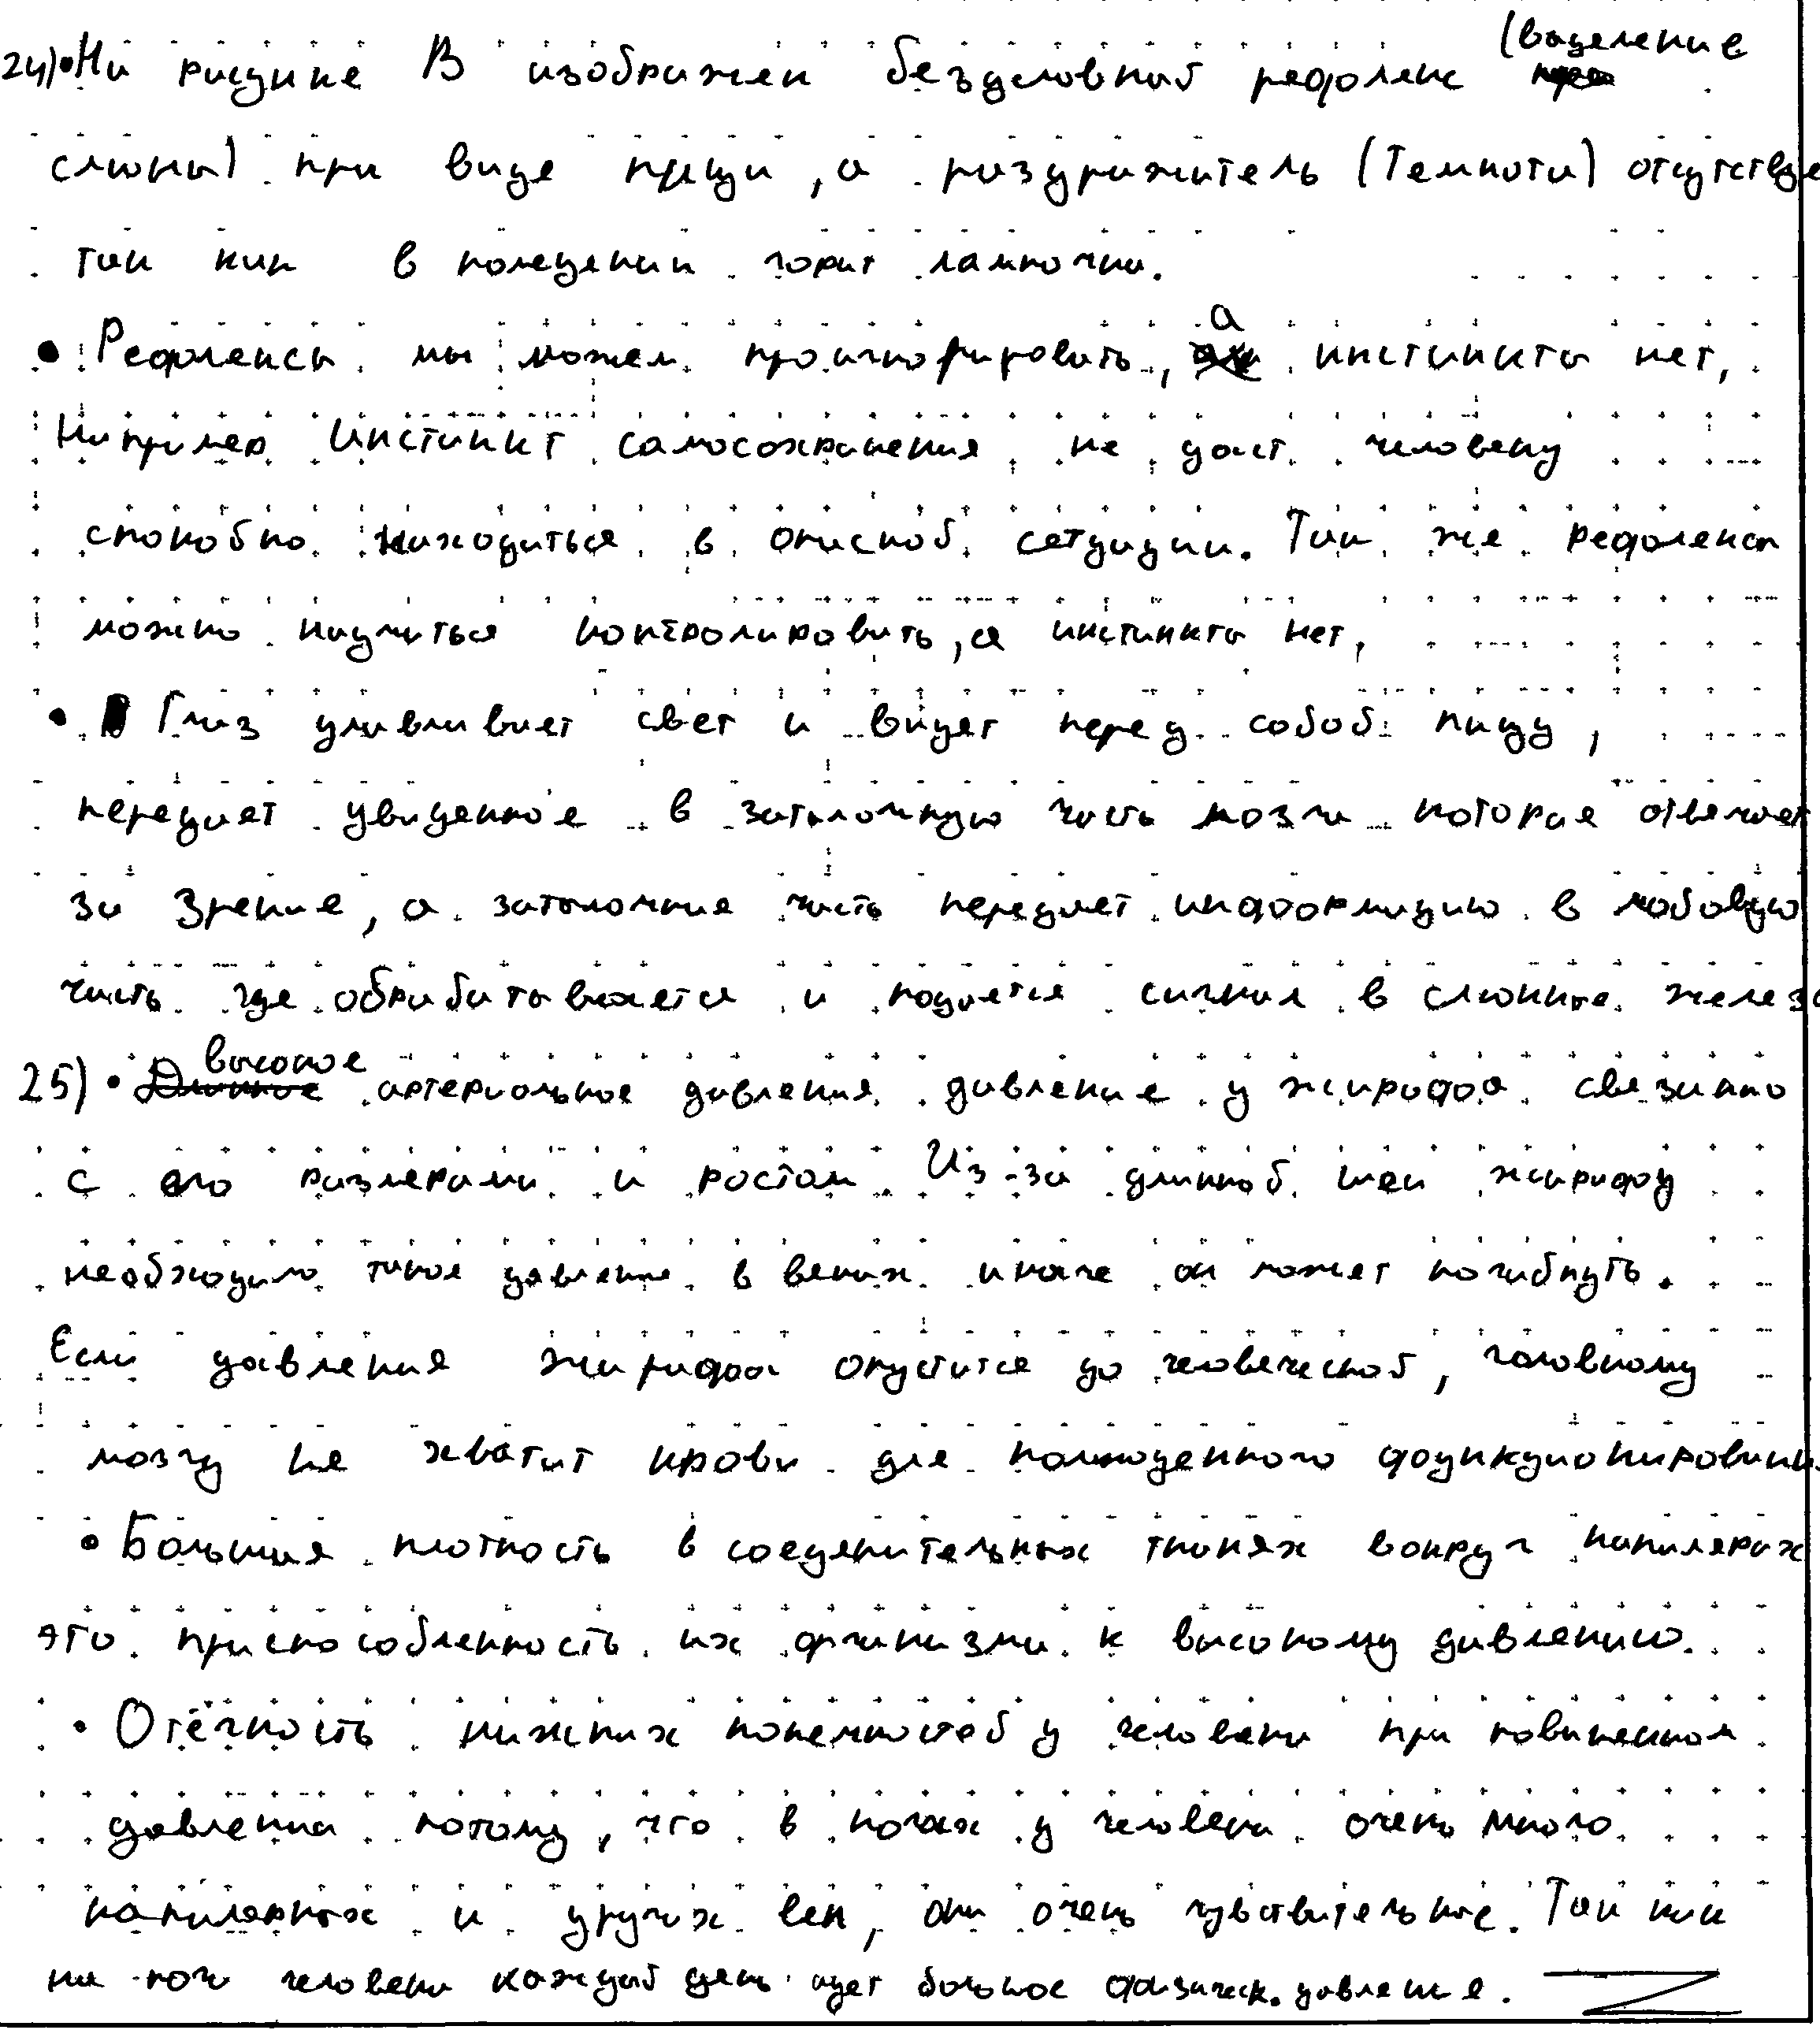 24) • На рисунке В изображен безусловный рефлекс (выделение
слюны) при виде пищи, а раздражитель (темнота) отсутствуе
так как в помещении горит лампочка.
• Рефлексы мы можем проигнорировать, а инстинкты нет,
Например инстинкт самосохранения не даст человеку
спокойно находиться в опасной сетуации. Так же рефлексы
можно научиться контролировать, а инстинкты нет,
• Глаз улавливает свет и видет перед собой пищу,
передает увиденное в затылочную часть мозга которая отвечает
за зрение, а затылочная часть передает информацию в лобовую
часть где обрабатывается и подается сигнал в слюнные желез
25) • высокое артериальное давления давление у жирафа связанно
с его размерами и ростом Из-за длинной шеи жирафу
необходимо такое давление в венах иначе он может погибнуть.
Если давления жирафа опустится до человеческой, головному
мозгу не хватит крови для полноценного функционирования
• Большая плотность в соеденительных тканях вокруг капилярах
это приспособленность их организма к высокому давлению.
• Отёчность нижних конечностей у человека при повышенном
давлении потому, что в ногах у человека очень много
капилярных и других вен, они очень чувствительные. Так как
на ноги человека каждый день идет большое физическ. давление.